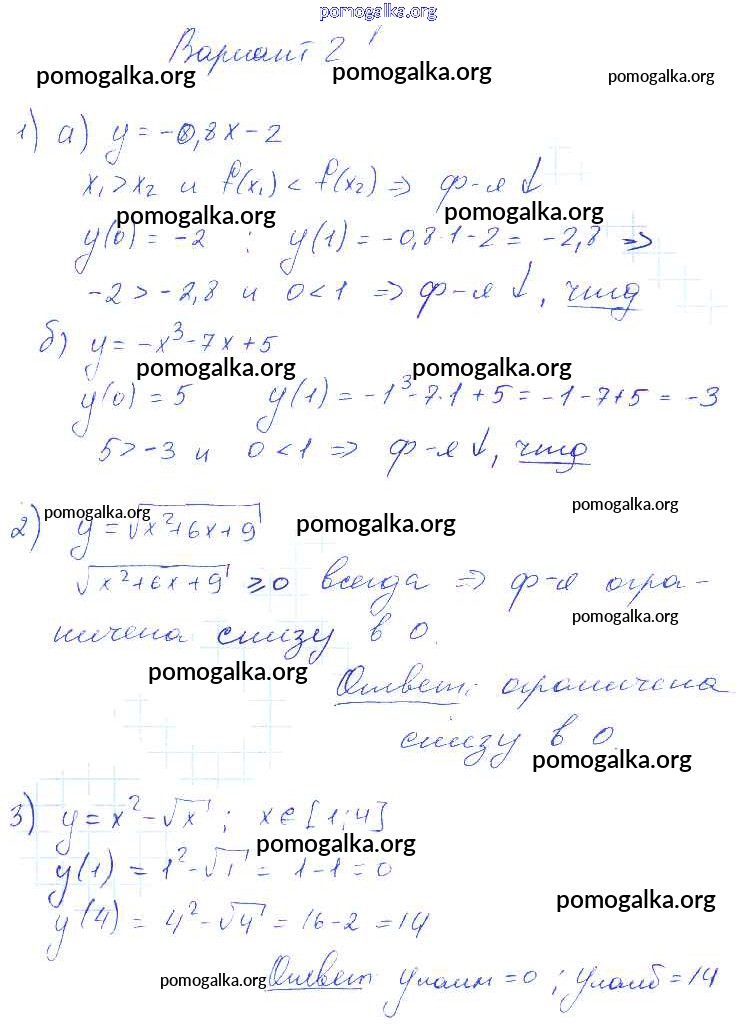 pomogalka.org
Вариант 2
pomogalka.org pomogalka.org pomogalka.org
1) а) y = -0,8x - 2
x₁ > x₂ и f(x₁) < f(x₂) => ф-я ↓
pomogalka.org pomogalka.org
y(0) = -2 ; y(1) = -0,8·1 - 2 = -2,8 =>
-2 > -2,8 и 0 < 1 => ф-я ↓, чтд
б) y = -x³ - 7x + 5
pomogalka.org pomogalka.org
y(0) = 5 y(1) = -1³ - 7·1 + 5 = -1 - 7 + 5 = -3
5 > -3 и 0 < 1 => ф-я ↓, чтд
pomogalka.org pomogalka.org pomogalka.org
2) y = √(x² + 6x + 9)
√(x² + 6x + 9) ≥ 0 всегда => ф-я огра-
pomogalka.org
ничена снизу в 0.
pomogalka.org
Ответ: ограничена
снизу в 0.
pomogalka.org
3) y = x² - √x ; x ∈ [1; 4]
pomogalka.org
y(1) = 1² - √1 = 1 - 1 = 0
pomogalka.org
y(4) = 4² - √4 = 16 - 2 = 14
pomogalka.org Ответ: yнаим = 0 ; yнаиб = 14